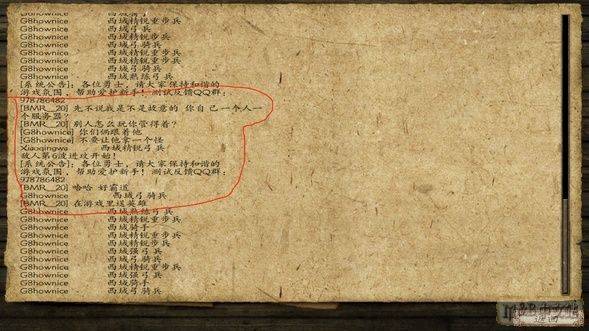 G8hownice 西域精锐重步兵
G8hownice 西域弓兵
G8hownice 西域弓骑兵
G8hownice 西域精锐重步兵
G8hownice 西域精锐重步兵
G8hownice 西域弓骑兵
G8hownice 西域熟练弓兵
[系统公告]：各位勇士，请大家保持和谐的
游戏氛围，帮助爱护新手！测试反馈QQ群：
978786482
[BMR__20] 先不说我是不是故意的 你自己一个人一
个服务器？
[BMR__20] 别人怎么玩你管得着？
[G8hownice] 你们俩跟着他
[G8hownice] 不要让他拿一个怪
Xiaoqingwa 西域精锐弓兵
敌人第6波进攻开始！
[系统公告]：各位勇士，请大家保持和谐的
游戏氛围，帮助爱护新手！测试反馈QQ群：
978786482
[BMR__20] 哈哈 好霸道
G8hownice 西域弓骑兵
[BMR__20] 在游戏里送英雄
G8hownice 西域熟练弓兵
G8hownice 西域精锐重步兵
G8hownice 西域骑手
G8hownice 西域弓骑兵
G8hownice 西域强弓兵
G8hownice 西域弓骑兵
G8hownice 西域精锐重步兵
G8hownice 西域强弓兵
G8hownice 西域骑手
G8hownice 西域弓骑兵